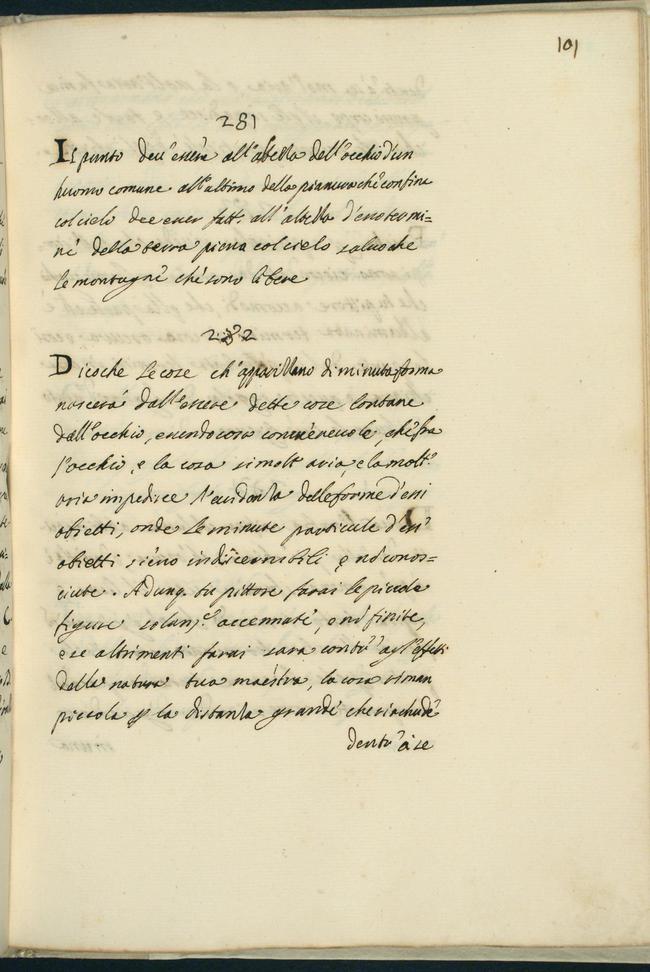 101
281
Il punto deu' essere all'altezza dell'occhio d'un
huomo comune all'ultimo della pianura che confina
col cielo dee esser fatt. all'altezza d'esso termi=
ne della terra piena col cielo saluo che
le montagne che sono libere
282
Dico che le cose ch'appariranno di minuta forma
nascerà dall'essere dette cose lontane
dall'occhio, essendo cosi conuèneuole, che fra
l'occhio, e la cosa sia molt'aria, e la molt'
aria impedisce l'euidenza delle forme d'essi
obietti, onde le minute particule d'essi
obietti sieno indiscernibili, e nō conos=
ciute. Adunq. tu pittore farai le piccole
figure solam.te accennate, e nō finite,
e se altrimenti farai sara contr' agl'effetti
della natura tua maestra, la cosa riman
piccola p la distanza grande che riachude
dentr' à se